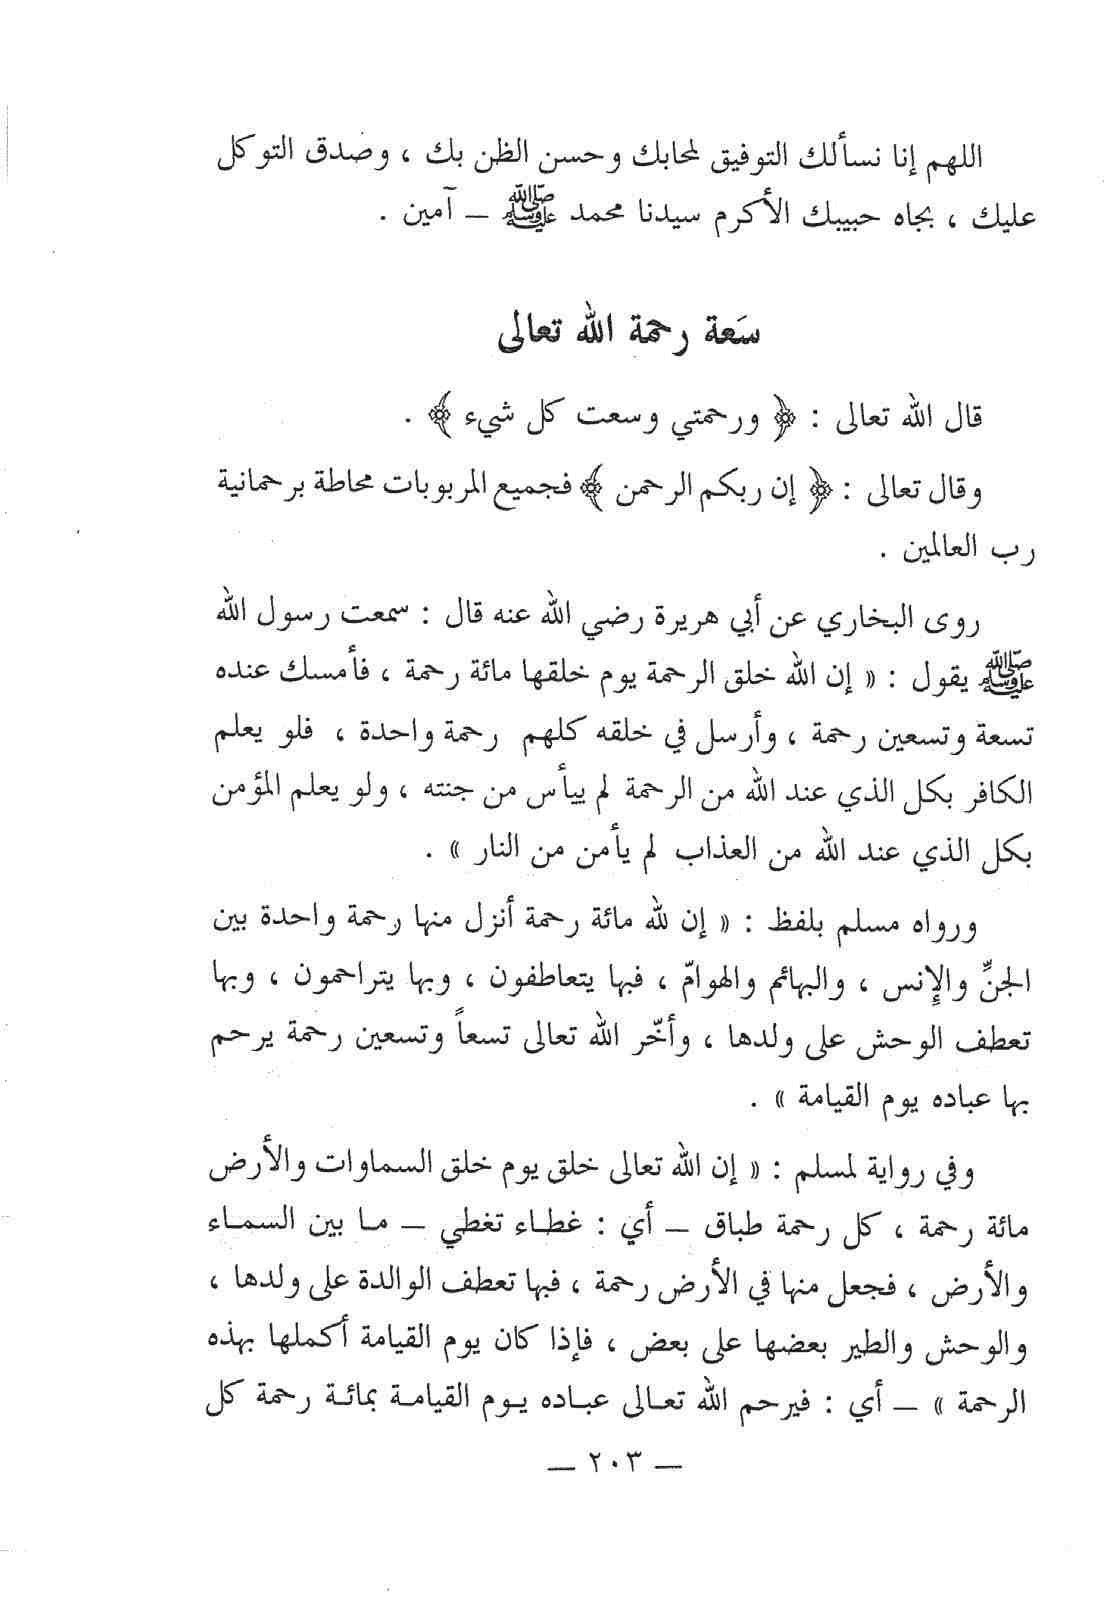 اللهم إنا نسألك التوفيق لمحابك وحسن الظن بك ، وصدق التوكل
عليك ، بجاه حبيبك الأكرم سيدنا محمد ﷺ ـ آمين .
سَعة رحمة الله تعالى
قال الله تعالى : ﴿ ورحمتي وسعت كل شيء ﴾ .
وقال تعالى : ﴿ إن ربكم الرحمن ﴾ فجميع المربوبات محاطة برحمانية
رب العالمين .
روى البخاري عن أبي هريرة رضي الله عنه قال : سمعت رسول الله
ﷺ يقول : « إن الله خلق الرحمة يوم خلقها مائة رحمة ، فأمسك عنده
تسعة وتسعين رحمة ، وأرسل في خلقه كلهم رحمة واحدة ، فلو يعلم
الكافر بكل الذي عند الله من الرحمة لم ييأس من جنته ، ولو يعلم المؤمن
بكل الذي عند الله من العذاب لم يأمن من النار » .
ورواه مسلم بلفظ : « إن لله مائة رحمة أنزل منها رحمة واحدة بين
الجنِّ والإنس ، والبهائم والهوامّ ، فبها يتعاطفون ، وبها يتراحمون ، وبها
تعطف الوحش على ولدها ، وأخّر الله تعالى تسعاً وتسعين رحمة يرحم
بها عباده يوم القيامة » .
وفي رواية لمسلم : « إن الله تعالى خلق يوم خلق السماوات والأرض
مائة رحمة ، كل رحمة طباق ـ أي : غطاء تغطي ـ ما بين السماء
والأرض ، فجعل منها في الأرض رحمة ، فبها تعطف الوالدة على ولدها ،
والوحش والطير بعضها على بعض ، فإذا كان يوم القيامة أكملها بهذه
الرحمة » ـ أي : فيرحم الله تعالى عباده يوم القيامة بمائة رحمة كل
ـ ٢٠٣ ـ